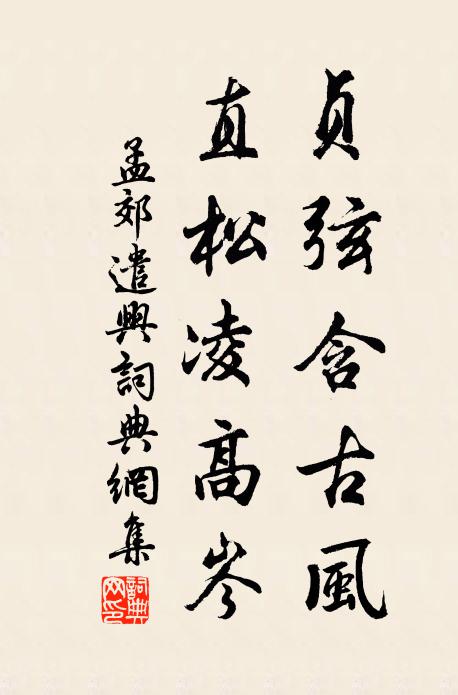 貞弦含古風
直松凌高岑
孟郊遣興詞典網集
詞典网印